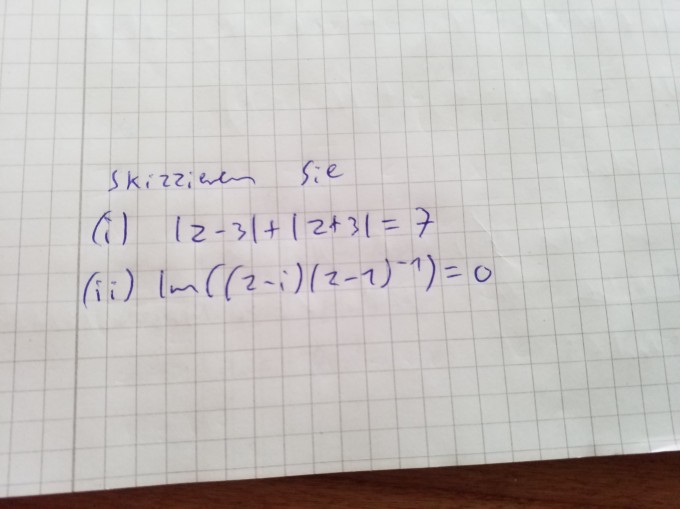 Skizzieren Sie
(i) |z-3|+|z+3|=7
(ii) Im((z-i)(z-1)⁻¹)=0